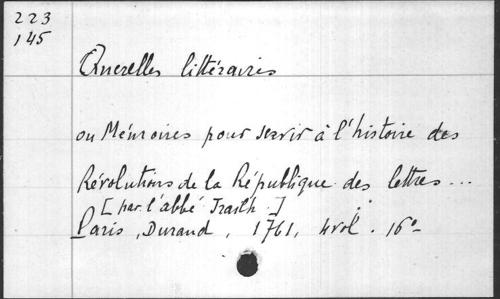 223
145
Querelles littéraires
ou Mémoires pour servir à l'histoire des
Révolutions de la République des lettres...
[par l'abbé Irailh.]
Paris, Durand, 1761, 4 vol. 16º